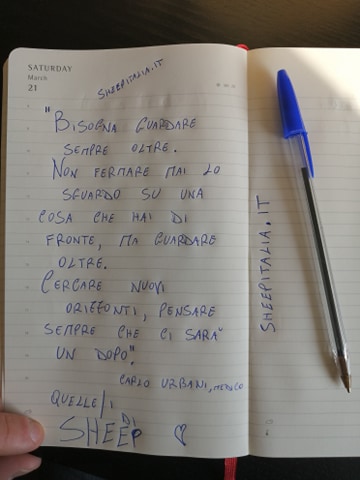 SATURDAY
March
21
SHEEPITALIA.IT
"BISOGNA GUARDARE
SEMPRE OLTRE.
NON FERMARE MAI LO
SGUARDO SU UNA
COSA CHE HAI DI
FRONTE, MA GUARDARE
OLTRE.
CERCARE NUOVI
ORIZZONTI, PENSARE
SEMPRE CHE CI SARA'
UN DOPO".
CARLO URBANI, MEDICO
QUELLE/I
DI
SHEEP
SHEEPITALIA.IT